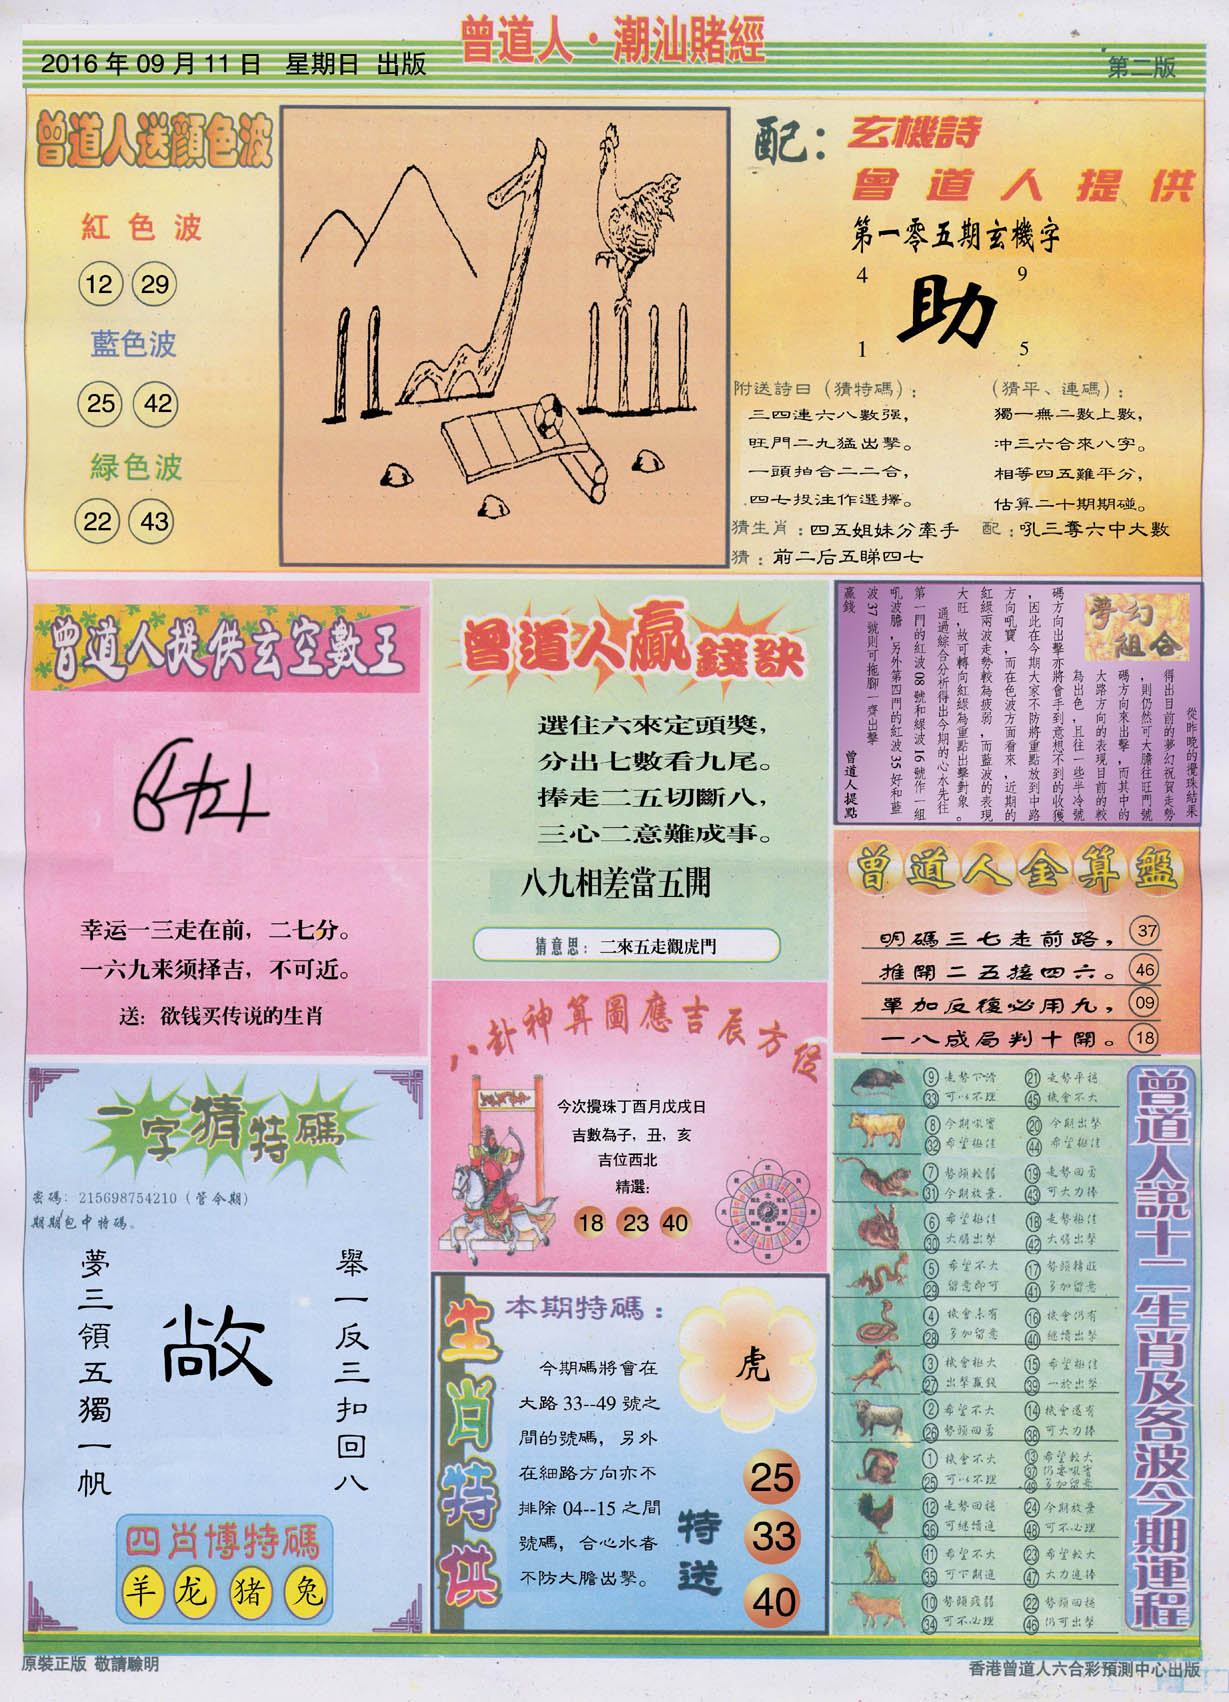 曾道人·潮汕賭經
2016年09月11日 星期日 出版
第二版
曾道人送顏色波
紅色波
12 29
藍色波
25 42
緑色波
22 43
配：
玄機詩
曾道人提供
第一零五期玄機字
4 9
助
1 5
附送詩曰（猜特碼）：
三四連六八數强，
旺門二九猛出擊。
一頭拍合二二合，
四七投注作選擇。
（猜平、連碼）：
獨一無二數上數，
冲三六合來八字。
相等四五難平分，
估算二十期期碰。
猜生肖：四五姐妹分牽手
配：吼三奪六中大數
猜：前二后五睇四七
曾道人提供玄空數王
幸运一三走在前，二七分。
一六九来须择吉，不可近。
送：欲钱买传说的生肖
曾道人贏錢訣
選住六來定頭獎，
分出七數看九尾。
捧走二五切斷八，
三心二意難成事。
八九相差當五開
猜意思：二來五走觀虎門
夢幻組合
從昨晚的攪珠結果
得出目前的夢幻祝賀走勢
，則仍然可大膽往旺門號
碼方向來出擊，而其中的
大路方向的表現目前的較
為出色，且往一些半冷號
碼方向出擊亦將會手到意想不到的收獲
，因此在今期大家不防將重點放到中路
方向吼寶，而在色波方面看來，近期的
紅綠兩波走勢較為疲弱，而藍波的表現
大旺，故可轉向紅綠為重點出擊對象。
通過綜合分析得出今期的心水先往
第一門的紅波08號和綠波16號作一組
吼波膽，另外第四門的紅波35好和藍
波37號則可拖腳一齊出擊
贏錢
曾道人提點
曾道人金算盤
明碼三七走前路， 37
推開二五接四六。 46
單加反復必用九， 09
一八成局判十開。 18
八卦神算圖應吉辰方位
今次攪珠丁酉月戊戌日
吉數為子，丑，亥
吉位西北
精選：
18 23 40
一字猜特碼
密碼：215698754210（管令期）
期期包中特碼。
舉一反三扣回八
敞
夢三領五獨一帆
四肖博特碼
羊 龙 猪 兔
生肖特供
本期特碼：
虎
今期碼將會在
大路33--49號之
間的號碼，另外
在細路方向亦不
排除04--15之間
號碼，合心水者
不防大膽出擊。
特送
25
33
40
曾道人説十二生肖及各波今期運程
9 走勢下滑 21 走勢平穩
33 可以不理 45 機會不大
8 今期吼實 20 今期出擊
32 希望極佳 44 希望極佳
7 勢頭較弱 19 走勢回勇
31 今期放棄 43 可大力捧
6 希望極佳 18 走勢極佳
30 大膽出擊 42 大膽出擊
5 希望不大 17 勢頭精旺
29 留意即可 41 多加留意
4 機會未有 16 機會仍有
28 多加留意 40 繼續出擊
3 機會極大 15 希望極佳
27 出擊贏錢 39 一於出擊
2 希望不大 14 機會還有
26 勢頭回勇 38 可大力捧
1 機會不大 13 希望較大
25 可以不理 37 仍要吼實
49 多加留意
12 走勢回穩 24 今期放棄
36 可繼續追 48 可不必理
11 希望不大 23 希望較大
35 可下期追 47 大力追捧
10 勢頭疲弱 22 勢頭回穩
34 可不必理 46 仍可出擊
原裝正版 敬請驗明
香港曾道人六合彩預測中心出版